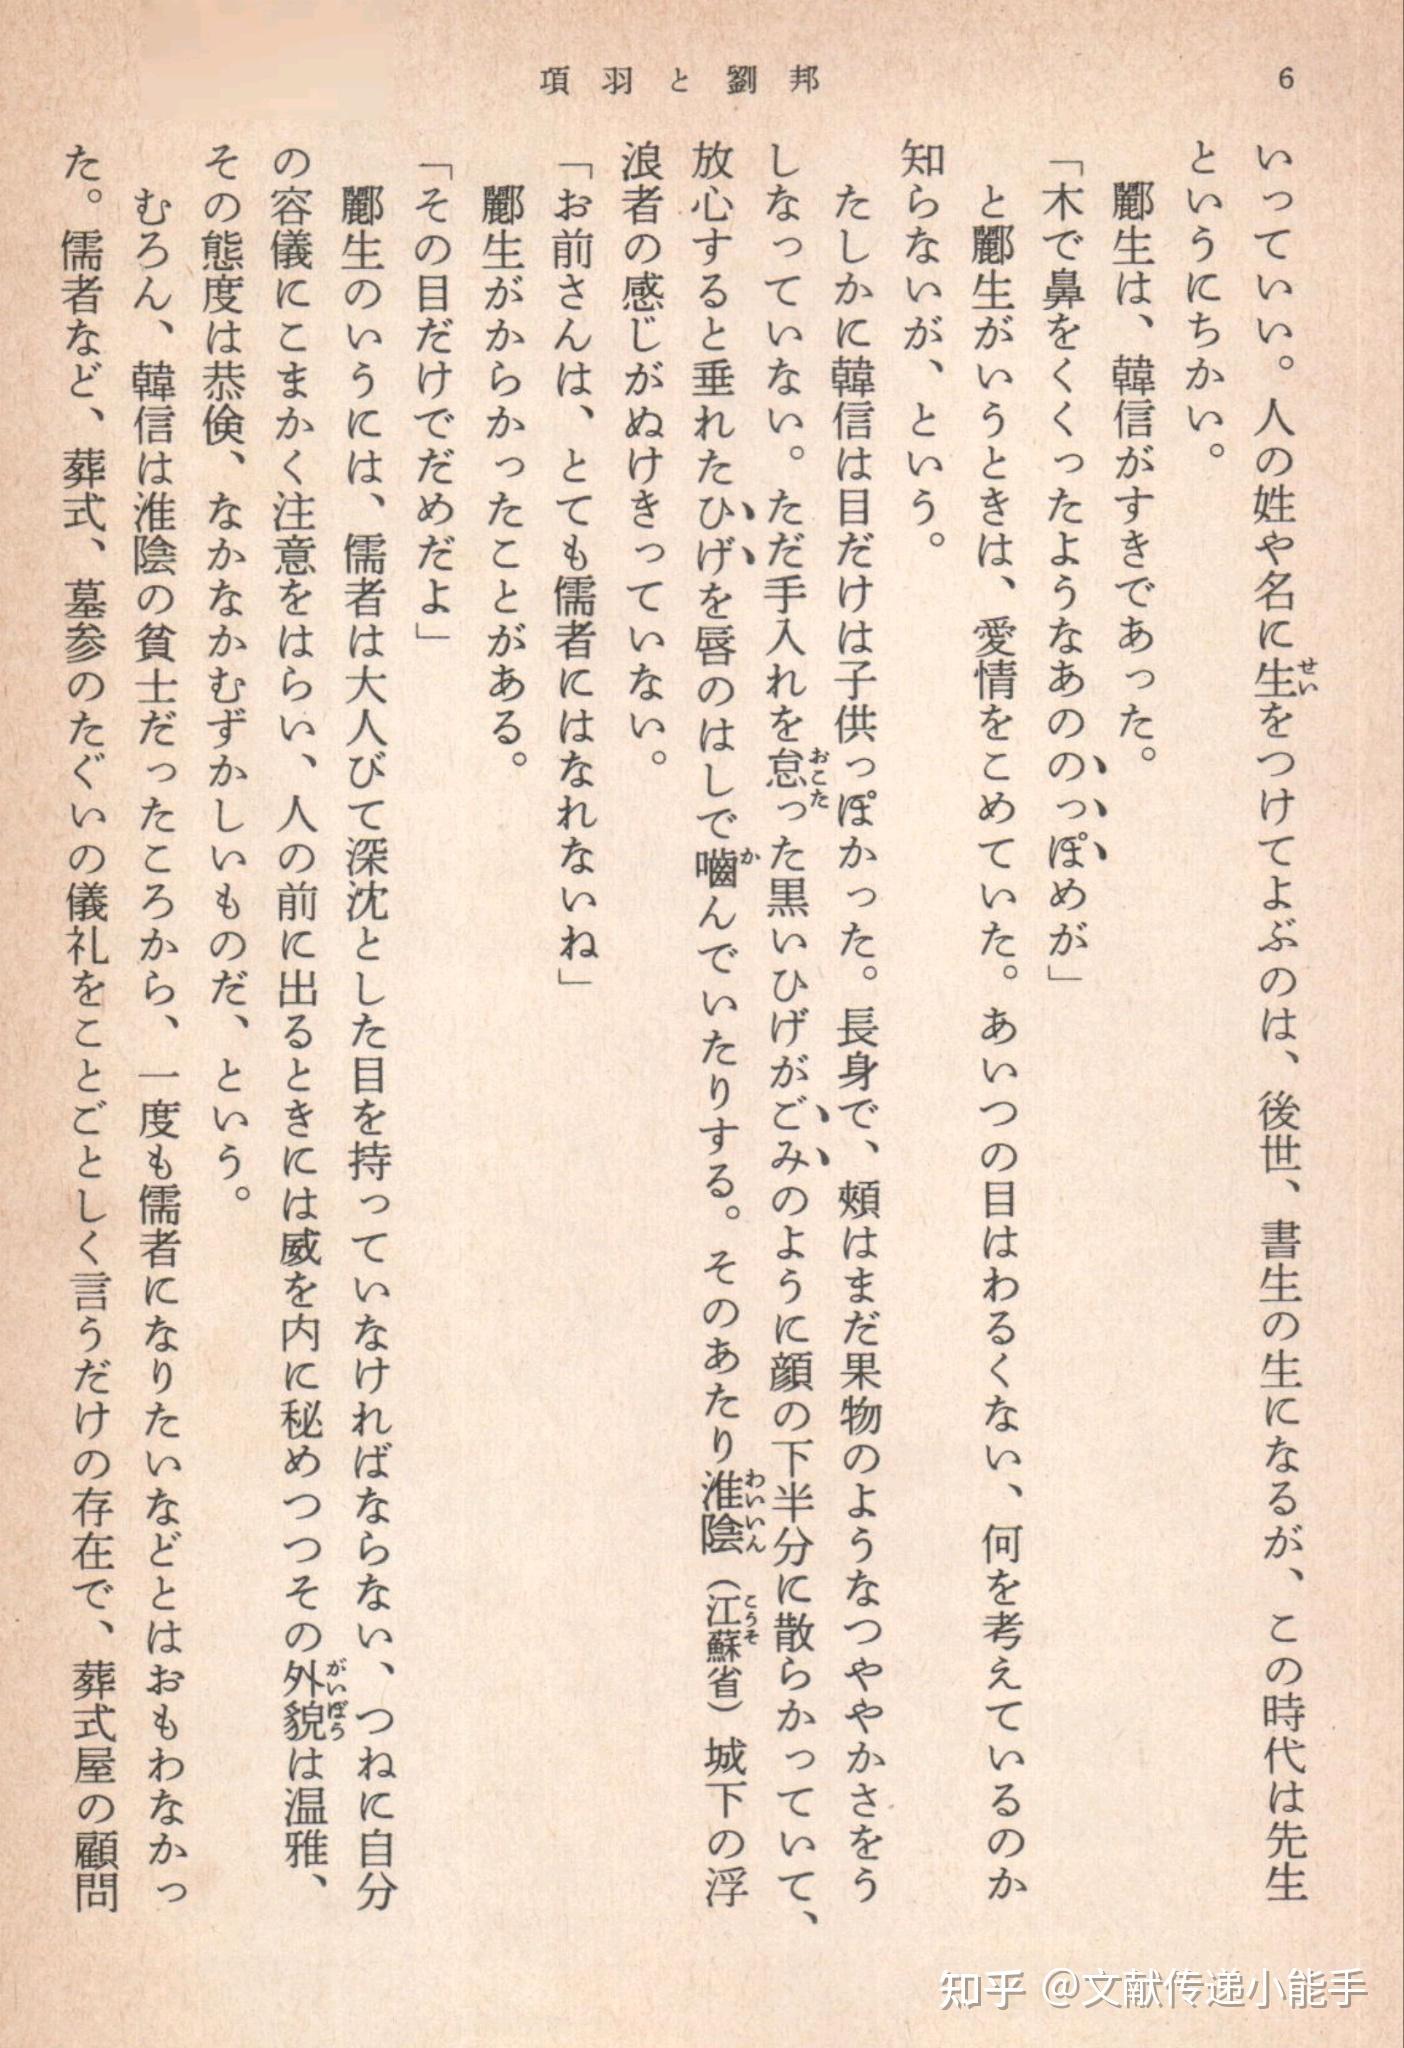 項羽と劉邦
6
いっていい。人の姓や名に生をつけてよぶのは、後世、書生の生になるが、この時代は先生
せい
というにちかい。
酈生は、韓信がすきであった。
「木で鼻をくくったようなあののっぽめが」
と酈生がいうときは、愛情をこめていた。あいつの目はわるくない、何を考えているのか
知らないが、という。
たしかに韓信は目だけは子供っぽかった。長身で、頰はまだ果物のようなつややかさをう
しなっていない。ただ手入れを怠った黒いひげがごみのように顔の下半分に散らかっていて、
おこた
放心すると垂れたひげを唇のはしで嚙んでいたりする。そのあたり淮陰（江蘇省）城下の浮
か
わいいん
こうそ
浪者の感じがぬけきっていない。
「お前さんは、とても儒者にはなれないね」
酈生がからかったことがある。
「その目だけでだめだよ」
酈生のいうには、儒者は大人びて深沈とした目を持っていなければならない、つねに自分
の容儀にこまかく注意をはらい、人の前に出るときには威を内に秘めつつその外貌は温雅、
がいぼう
その態度は恭倹、なかなかむずかしいものだ、という。
むろん、韓信は淮陰の貧士だったころから、一度も儒者になりたいなどとはおもわなかっ
た。儒者など、葬式、墓参のたぐいの儀礼をことごとしく言うだけの存在で、葬式屋の顧問
知乎 @文献传递小能手